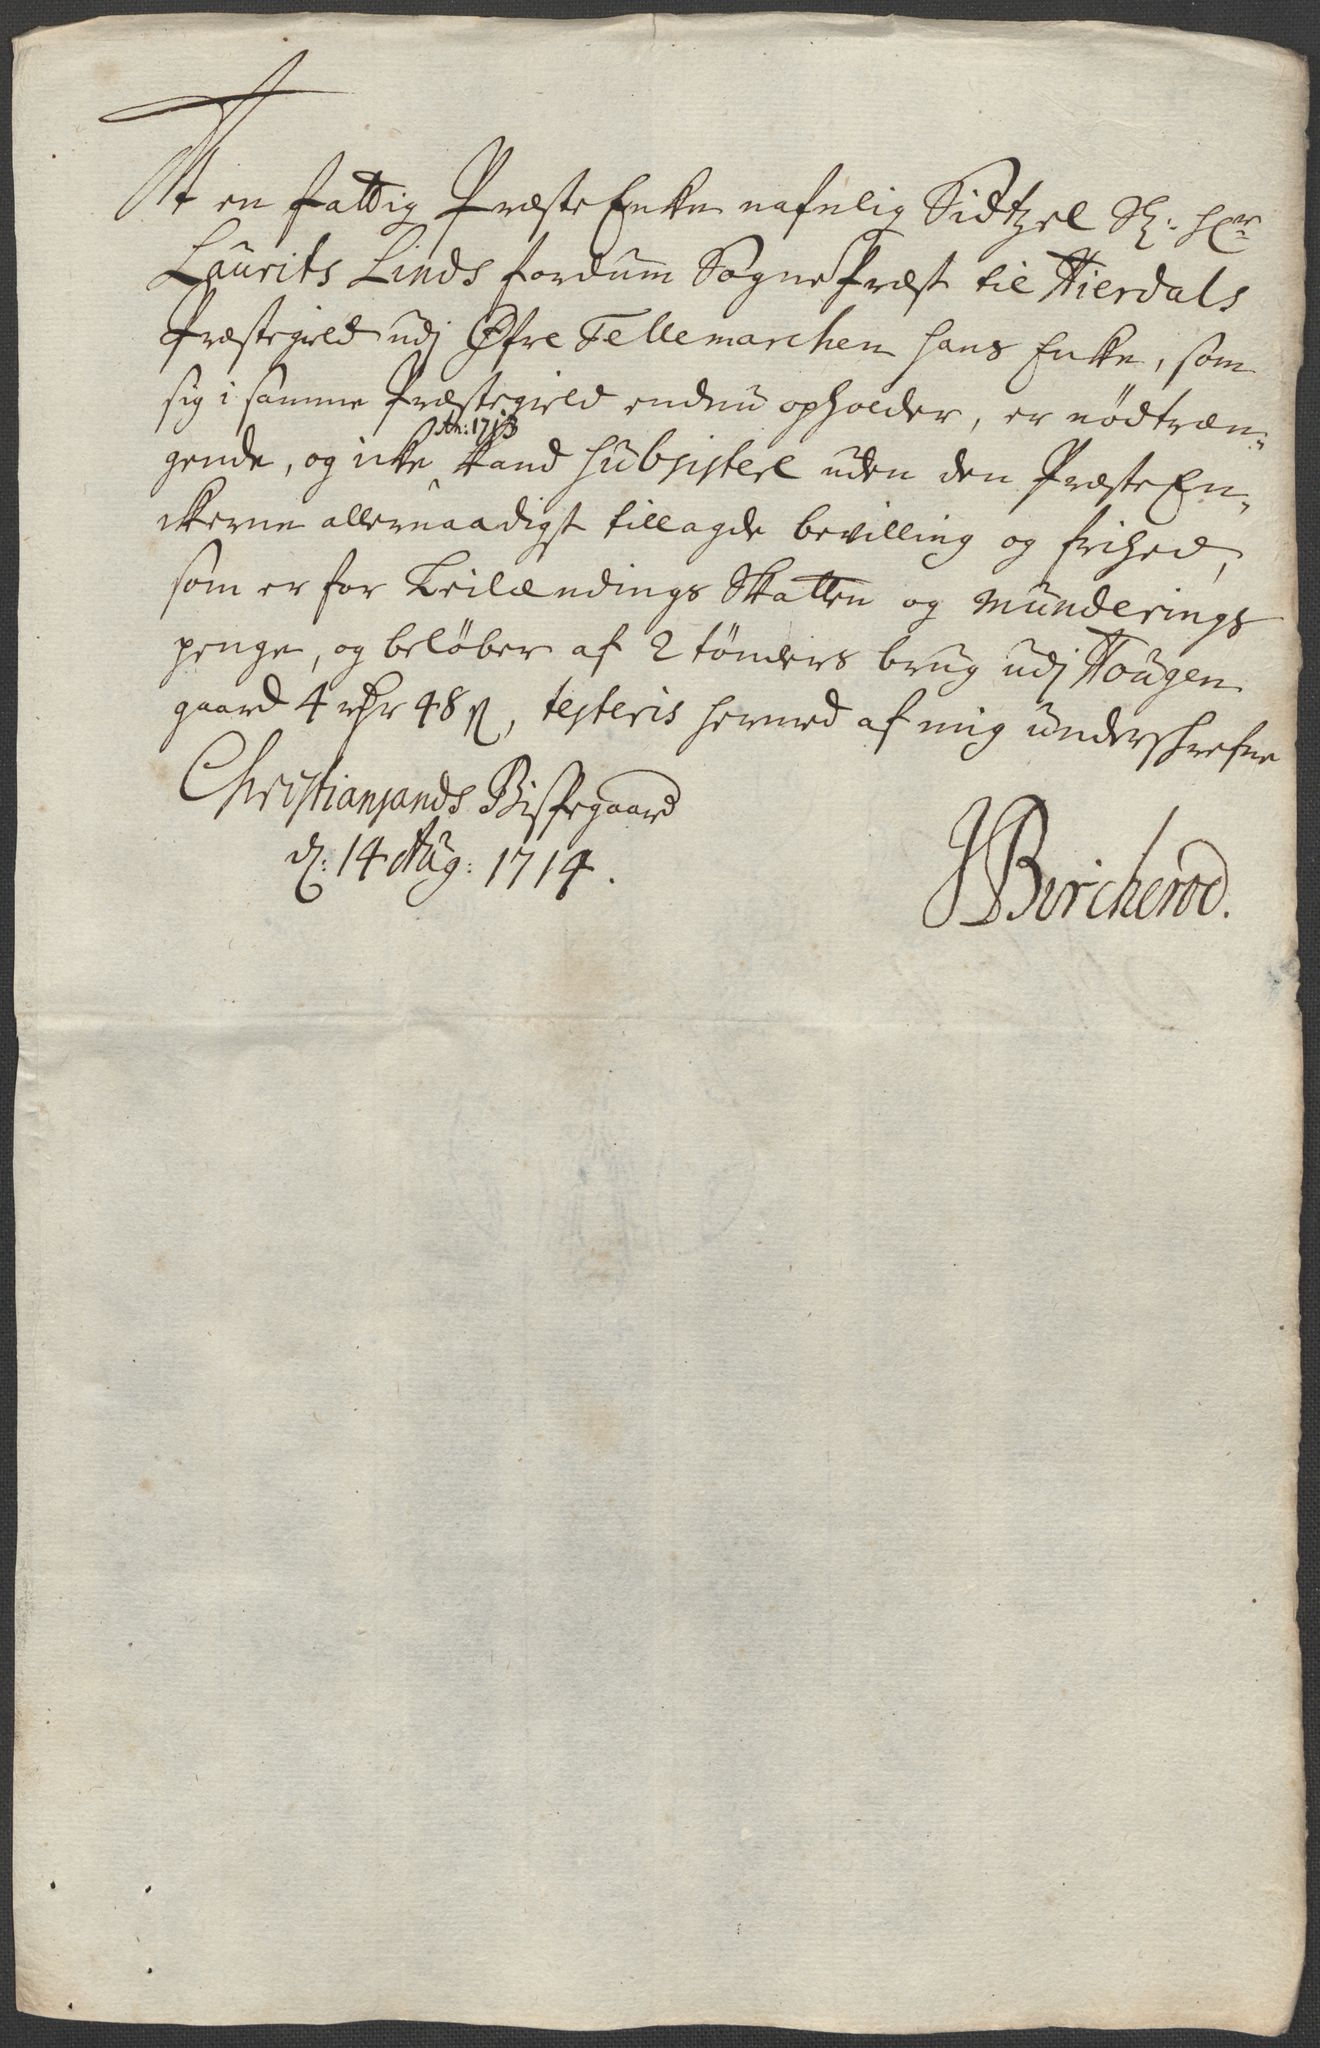 At en fattig PræsteEnke nafnlig Sidtzel Sl: Hr
Laurits Linds fordum SognePræst til Hierdals
Præstegield udj Øfre Tellemarchen hans Enke, som
sig i samme Præstegield endnu opholder, er nødtræn-
gende, og icke An: 1713 kand subsistere uden den PræsteEn-
ckerne allernaadigst tillagde bevilling og frihed,
som er for Leilændings Skatten og Munderings
penge, og beløber af 2 tønders brug udj Hougen
gaard 4 rdr 48 s, testeris hermed af mig underskrefne
Christiansands Bispegaard
d: 14 Aug: 1714.
JBircherod.